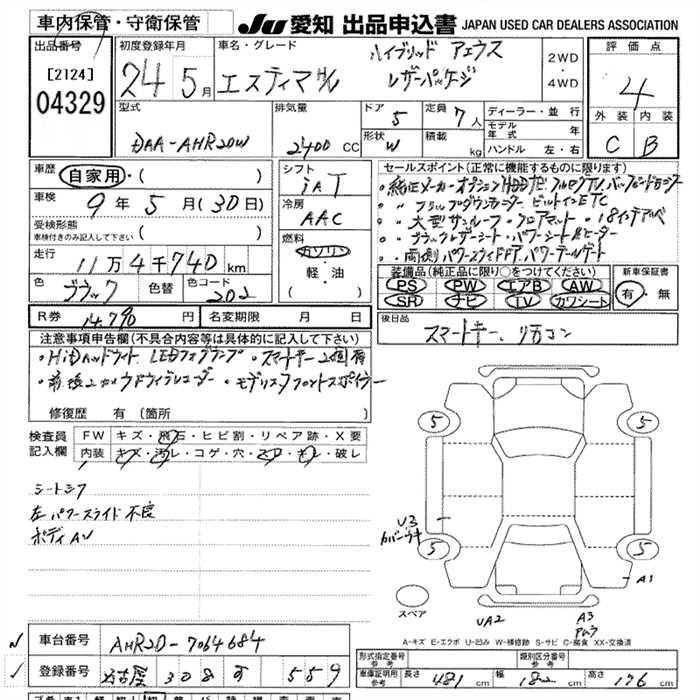 車内保管・守衛保管
JU 愛知 出品申込書 JAPAN USED CAR DEALERS ASSOCIATION
出品番号
[2124]
04329
初度登録年月
24 5月
車名・グレード
エスティマH/V
ハイブリッド アエラス
レザーパッケージ
2WD
・
4WD
評価点
4
外装 内装
C B
型式
DAA-AHR20W
排気量
2400 CC
ドア 5
定員 7人
形状 W
積載 kg
ディーラー・並行
モデル年式 年
ハンドル 左・右
車歴 自家用・( )
車検 9年5月(30日)
受検形態
車検付きのみ記入して下さい ( )
走行
11万4千740 km
色 ブラック 色替 色コード 202
シフト
IAT
冷房
AAC
燃料
ガソリン
・
軽・油
( )
セールスポイント(正常に機能するものに限ります)
・純正メーカーオプションHDDナビ フルセグTV バックモニター
・〃 フリップダウンモニター ビルトインETC
・〃 大型サンルーフ・フロアマット・18インチアルミ
・〃 ブラックレザーシート・パワーシート&ヒーター
・〃 両側パワースライドドア パワーテールゲート
装備品(純正品に限り○をつけてください)
PS PW エアB AW
SR ナビ TV カワシート
新車保証書
有・無
R券 円
名変期限 月 日
後日品
スマートキー、リモコン
注意事項申告欄(不具合内容等は具体的に記入して下さい)
・HiDヘッドライト LEDフォグランプ ・スマートキー2個有
・前後2カメラドライブレコーダー ・モデリスタフロントスポイラー
修復歴 有 (箇所 )
検査員記入欄
FW キズ・飛石・ヒビ割・リペア跡・X要
内装 キズ・汚レ・コゲ・穴・スレ・キレ・破レ
シートシワ
左パワースライド不良
ボディAU
5 5
5 5
U3
カバーワキ
A1
スペア
UA2
A3
A-キズ E-エクボ U-凹み W-補修跡 S-サビ C-腐食 XX-交換済
車台番号 AHR20-7064684
登録番号 名古屋 308 す 559
形式指定番号 参考
類別区分番号 参考
車庫証明用 参考 長さ 481 cm 幅 182 cm 高さ 176 cm